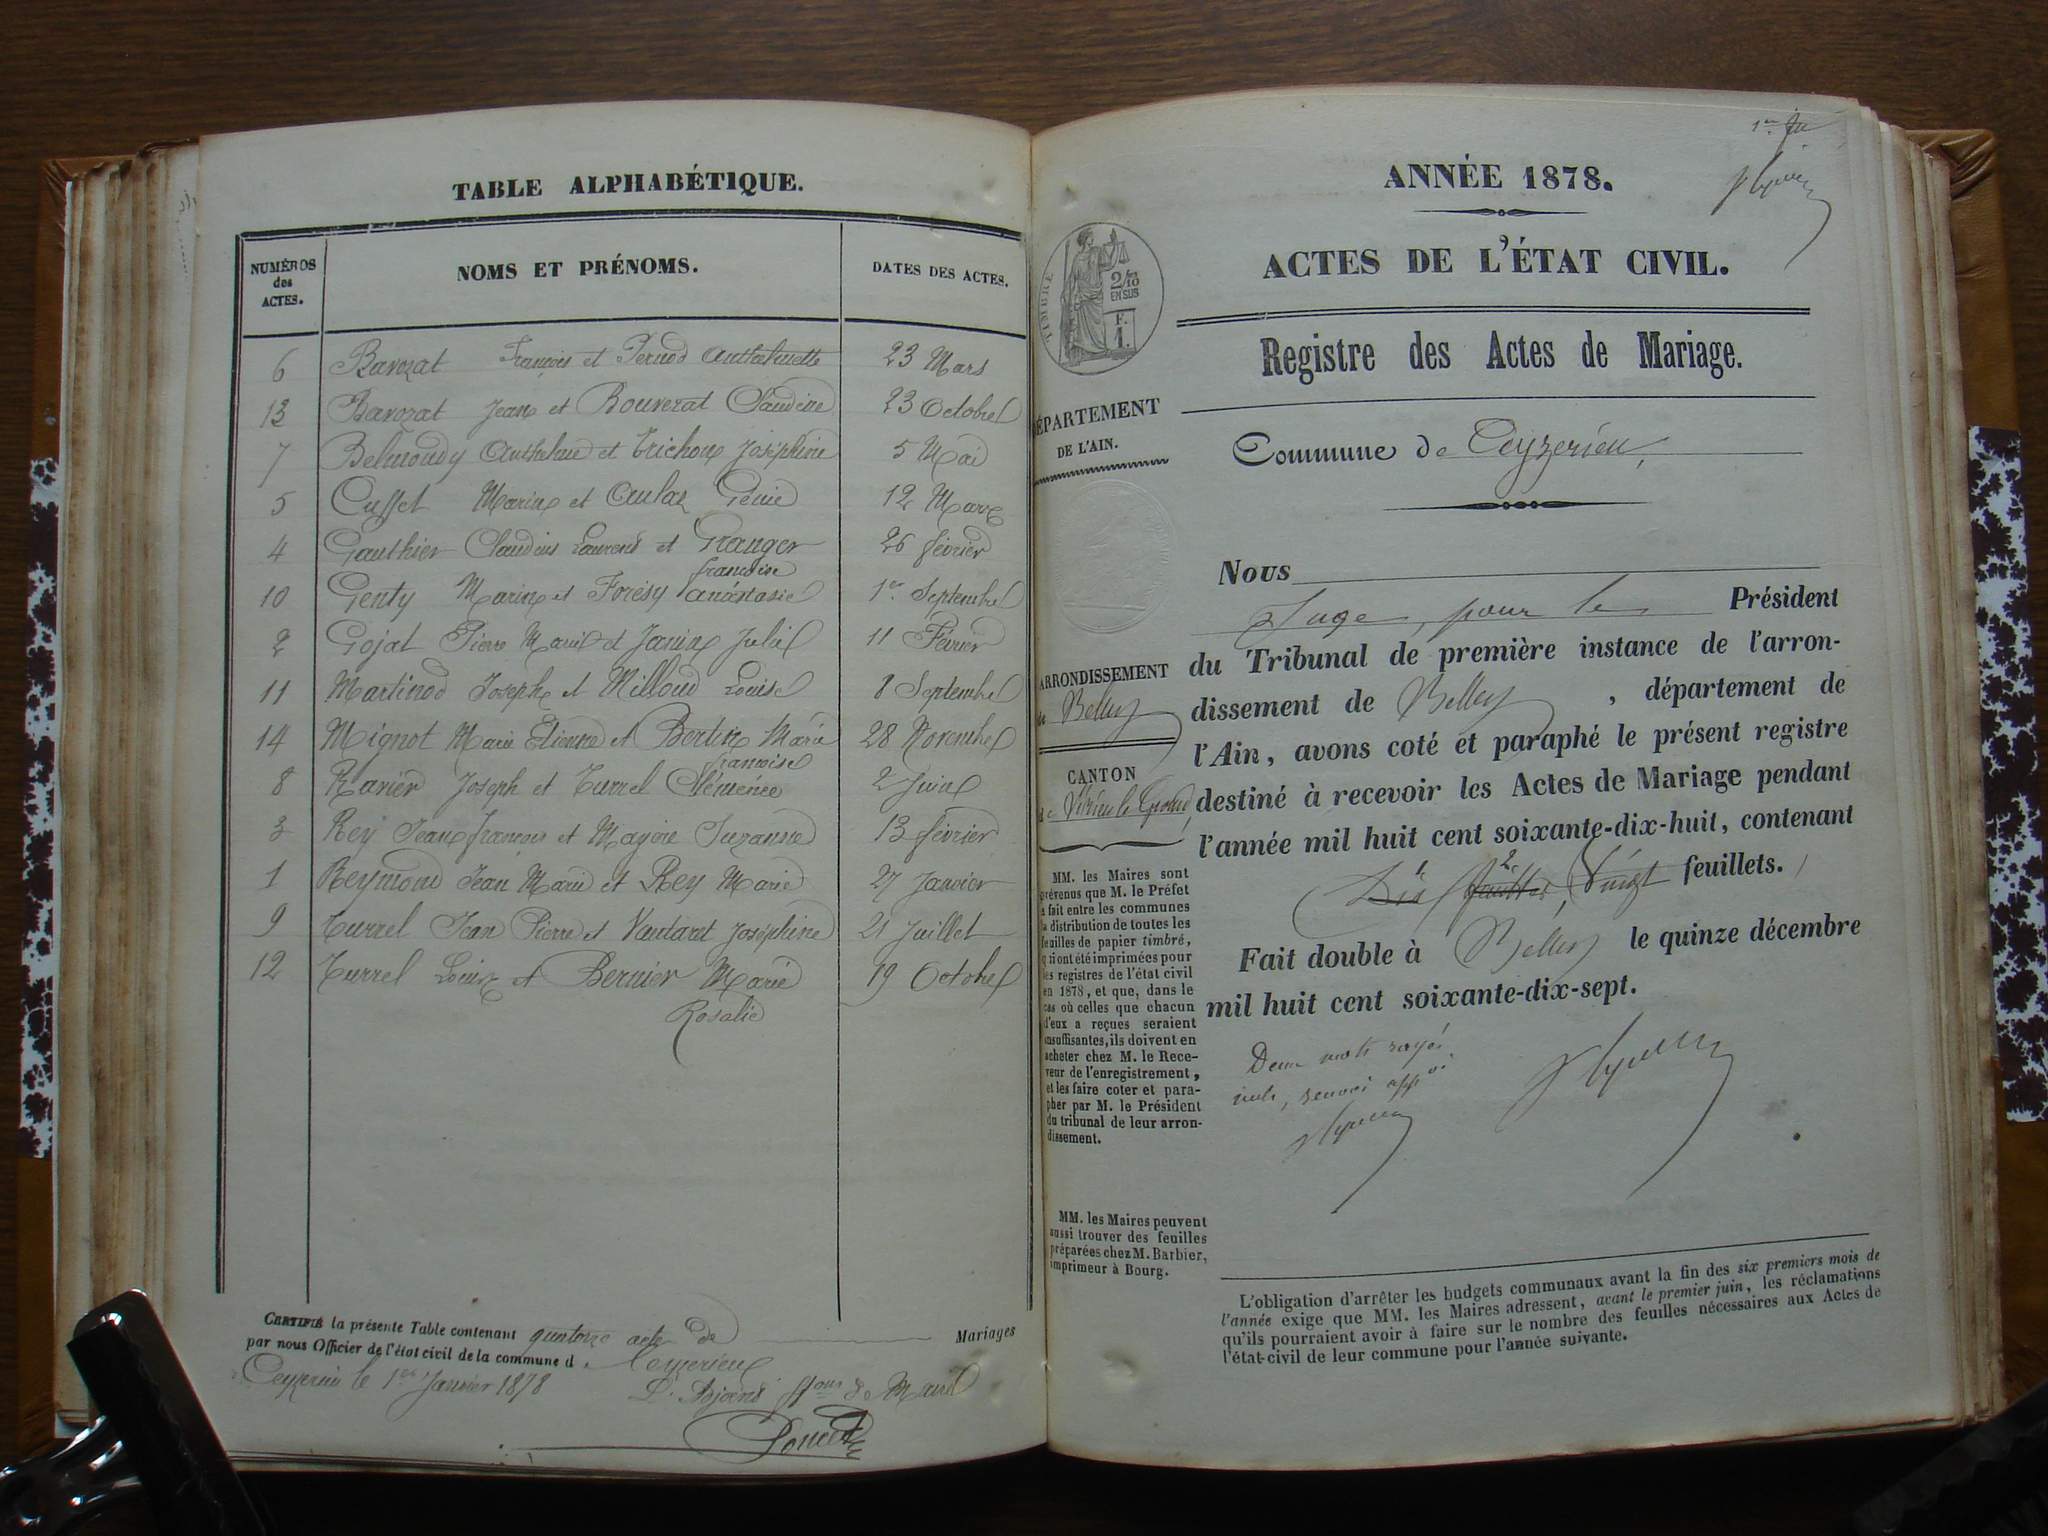 TABLE ALPHABÉTIQUE.
NUMÉROS des ACTES. NOMS ET PRÉNOMS. DATES DES ACTES.
6 Bavozat François et Pernod Anthelmette 23 Mars
13 Bavozat Jean et Bouvezat Claudine 23 Octobre
7 Belmondy Anthelme et Trichon Joséphine 5 Mai
5 Cusset Marin et Aulaz Génie 12 Mars
4 Gauthier Claudius Laurent et Granger 26 février
françoise
10 Genty Marin et Forésy anastasie 1er Septembre
2 Gojat Pierre Marie et Janin Julie 11 Février
11 Martinod Joseph et Milloud Louise 8 Septembre
14 Mignot Marie Etienne et Bertin Marie 28 Novembre
françoise
8 Ravier Joseph et Turrel Clémence 2 Juin
3 Rey Jean françois et Suzanne 13 février
1 Reymond Jean Marie et Rey Marie 27 Janvier
9 Turrel Jean Pierre et Vautaret Joséphine 21 Juillet
12 Turrel Louis et Bernier Marie 19 Octobre
Rosalie
CERTIFIÉ la présente Table contenant quatorze actes de Mariages
par nous Officier de l'état civil de la commune d Ceyzerieu
Ceyzerieu le 1er Janvier 1878 L'Adjoint pour le Maire
1er
ANNÉE 1878.
ACTES DE L'ÉTAT CIVIL.
Registre des Actes de Mariage.
TIMBRE
2/10
EN SUS
F.
1.
DÉPARTEMENT
DE L'AIN.
Commune de Ceyzerieu,
Nous
Juge, pour le Président
du Tribunal de première instance de l'arron-
dissement de Belley , département de
l'Ain, avons coté et paraphé le présent registre
destiné à recevoir les Actes de Mariage pendant
l'année mil huit cent soixante-dix-huit, contenant
Vingt feuillets.
Fait double à Belley le quinze décembre
mil huit cent soixante-dix-sept.
Deux mots rayés
nuls, renvoi
ARRONDISSEMENT
de Belley
CANTON
de Virieu le Grand
MM. les Maires sont
prévenus que M. le Préfet
a fait entre les communes
la distribution de toutes les
feuilles de papier timbré,
qui ont été imprimées pour
les registres de l'état civil
en 1878, et que, dans le
cas où celles que chacun
d'eux a reçues seraient
insuffisantes, ils doivent en
acheter chez M. le Rece-
veur de l'enregistrement,
et les faire coter et para-
pher par M. le Président
du tribunal de leur arron-
dissement.
MM. les Maires peuvent
aussi trouver des feuilles
préparées chez M. Barbier,
imprimeur à Bourg.
L'obligation d'arrêter les budgets communaux avant la fin des six premiers mois de
l'année exige que MM. les Maires adressent, avant le premier juin, les réclamations
qu'ils pourraient avoir à faire sur le nombre des feuilles nécessaires aux Actes de
l'état-civil de leur commune pour l'année suivante.